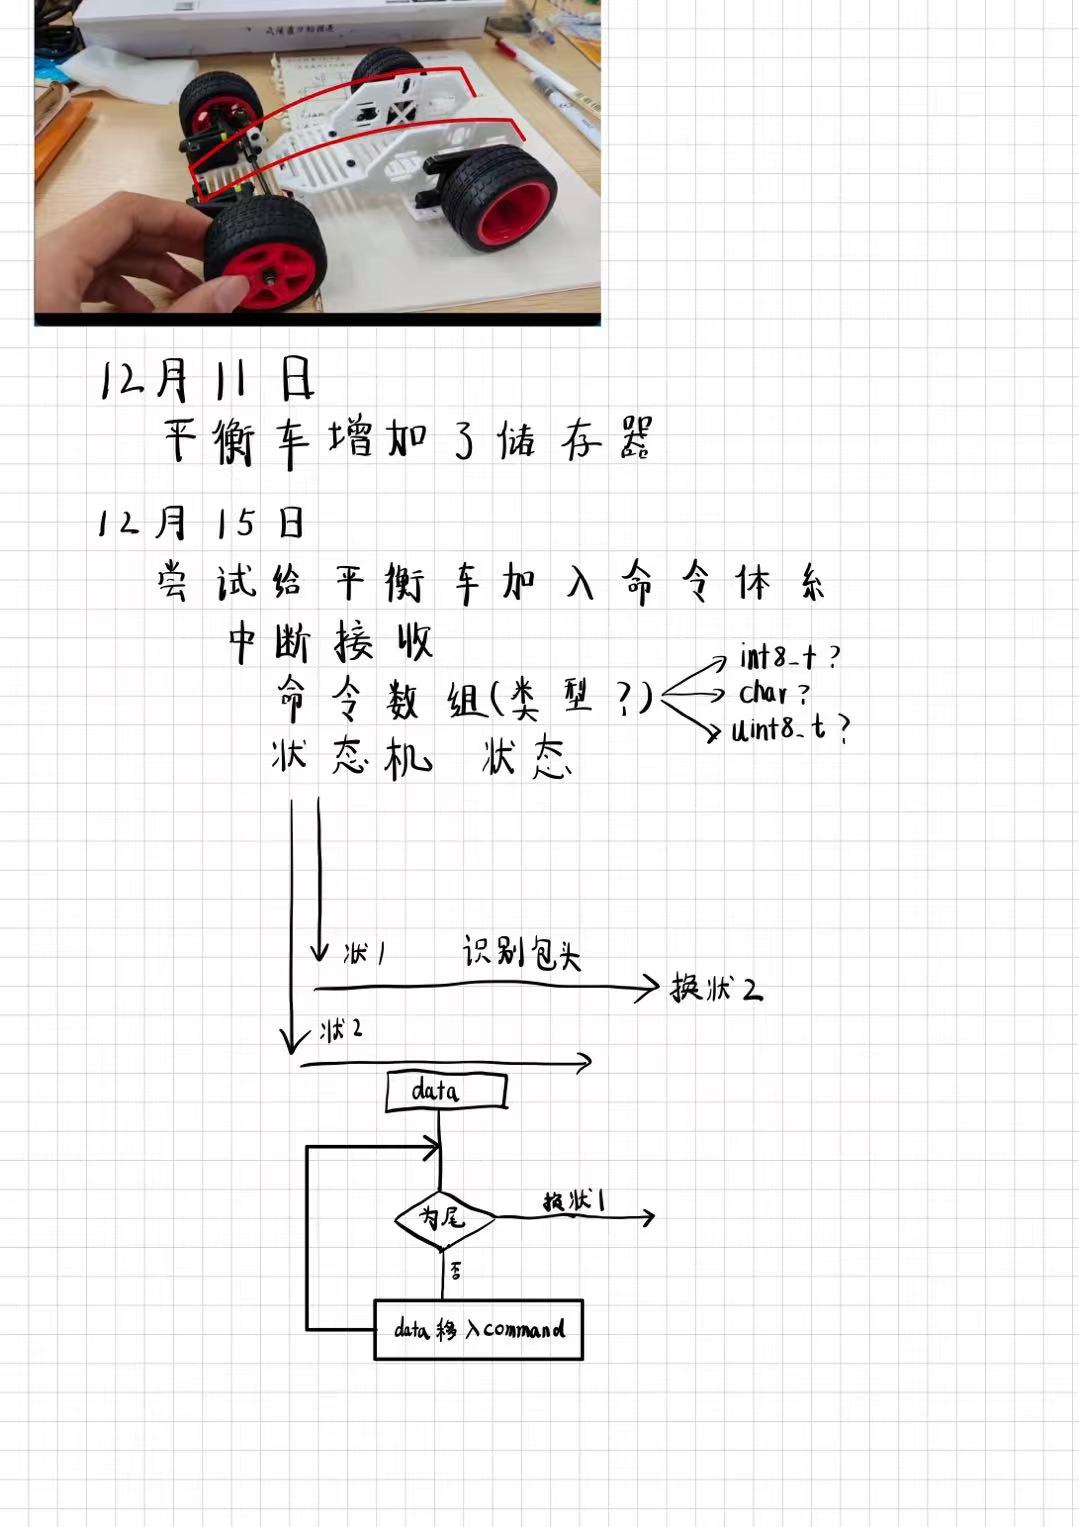 12月11日
平衡车增加了储存器
12月15日
尝试给平衡车加入命令体系
中断接收
命令数组(类型?)
int8_t?
char?
uint8_t?
状态机 状态
状1 识别包头
换状2
状2
data
为尾
换状1
否
data移入command